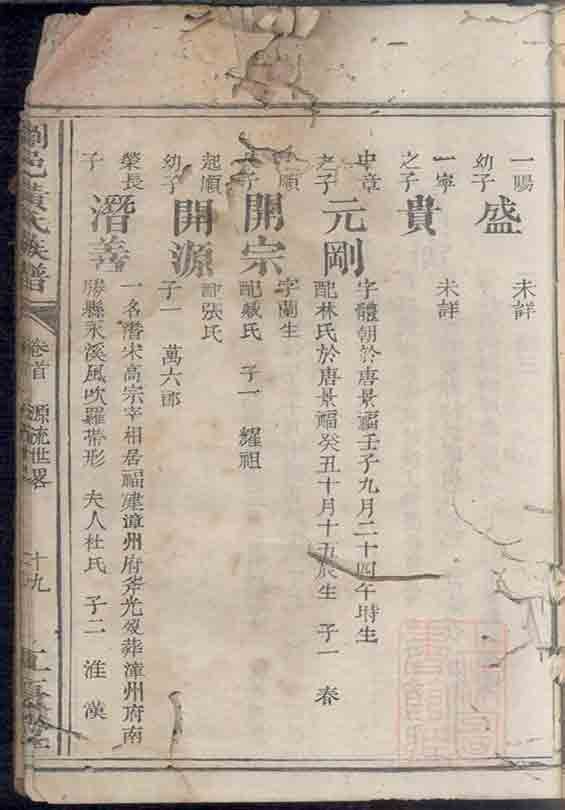 一賜
幼子
盛
未詳
一寧
之子
貴
未詳
中章
之子
元剛
字體朝於唐景福壬子九月二十四午時生
配林氏於唐景福癸丑十月十五辰生 子一 春
順
子
開宗
字蘭生
配臧氏 子一 耀祖
起順
幼子
開源
配張氏
子一 萬六郎
榮長
子
潛善
一名潛宋高宗宰相居福建漳州府斧光歿葬漳州府南
勝縣永溪風吹羅帶形 夫人杜氏 子二 淮 漢
瀏邑黃氏族譜
卷首 源流世畧
十九